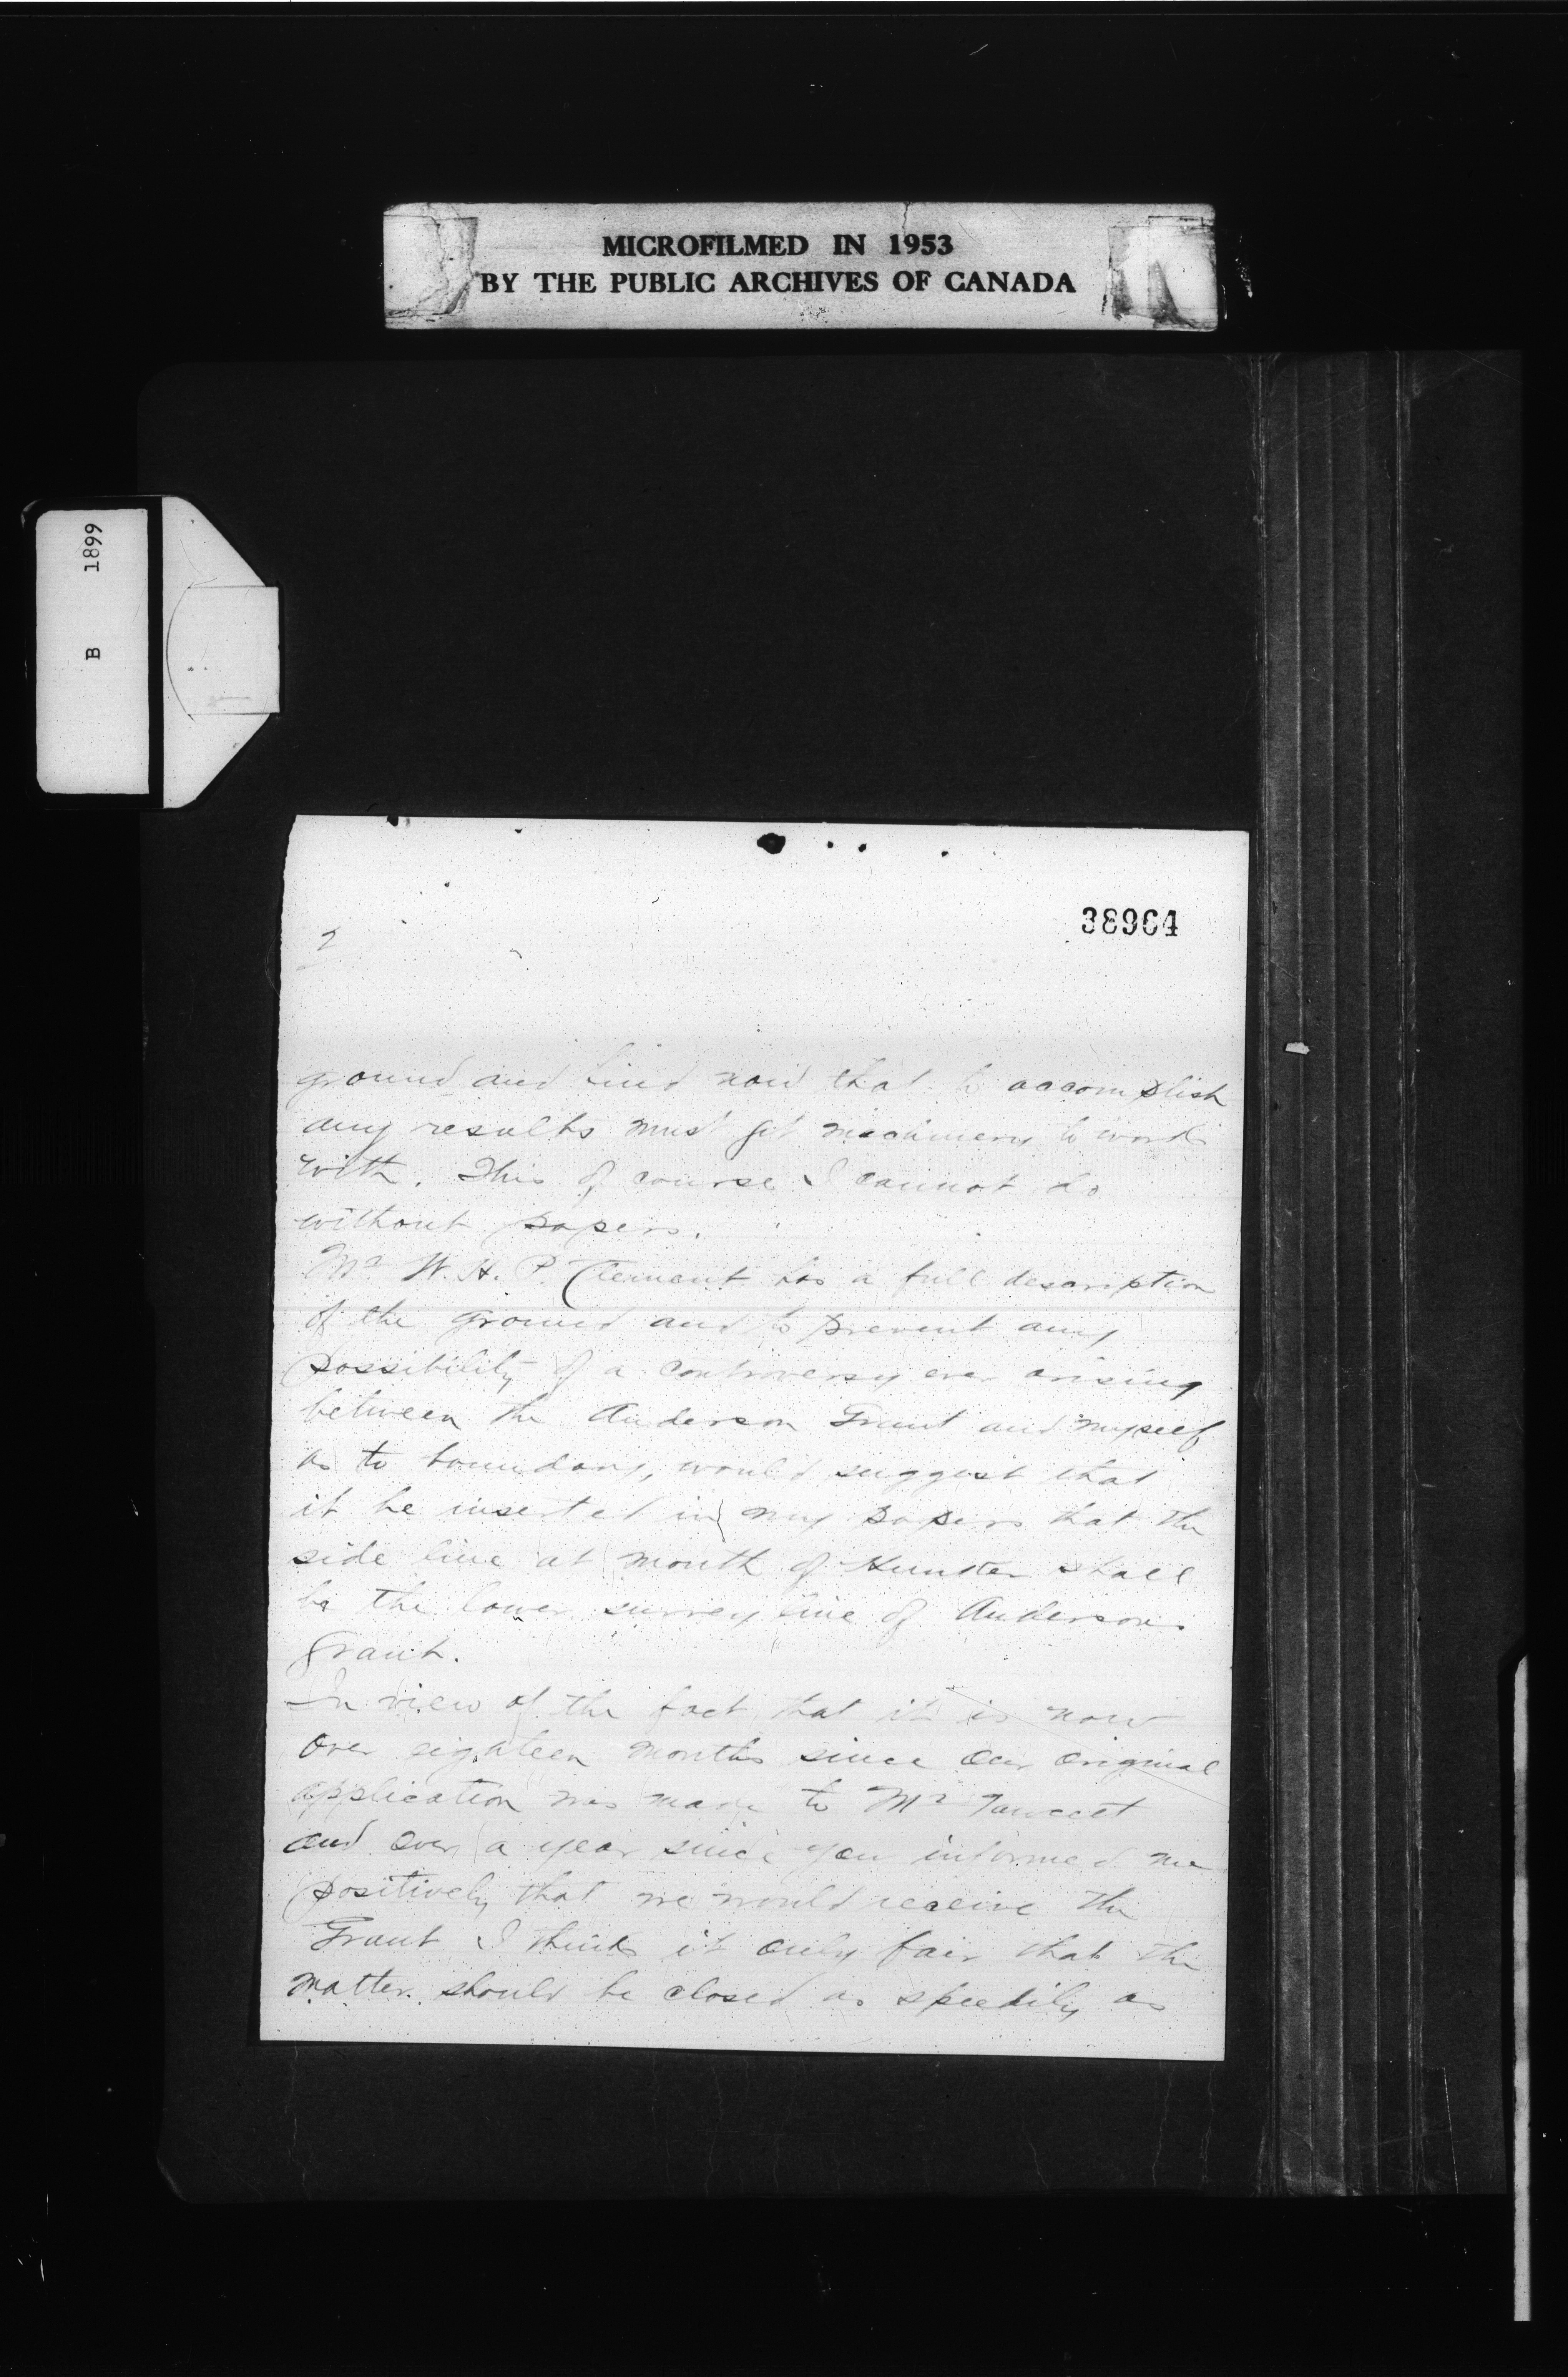 MICROFILMED IN 1953
BY THE PUBLIC ARCHIVES OF CANADA
B 1899
38964
2
ground and find now that to accomplish
any results must get machinery to work
with. This of course I cannot do
without papers.
Mr W. H. P. Clement has a full description
of the ground and to prevent any
possibility of a controversy ever arising
between the Anderson Grant and myself
as to boundary, would suggest that
it be inserted in my papers that the
side line at mouth of Hunker shall
be the lower survey line of Anderson
Grant.
In view of the fact that it is now
over eighteen months since our original
application was made to Mr Fawcett
and over a year since you informed me
positively that we would receive the
Grant I think it only fair that the
matter should be closed as speedily as